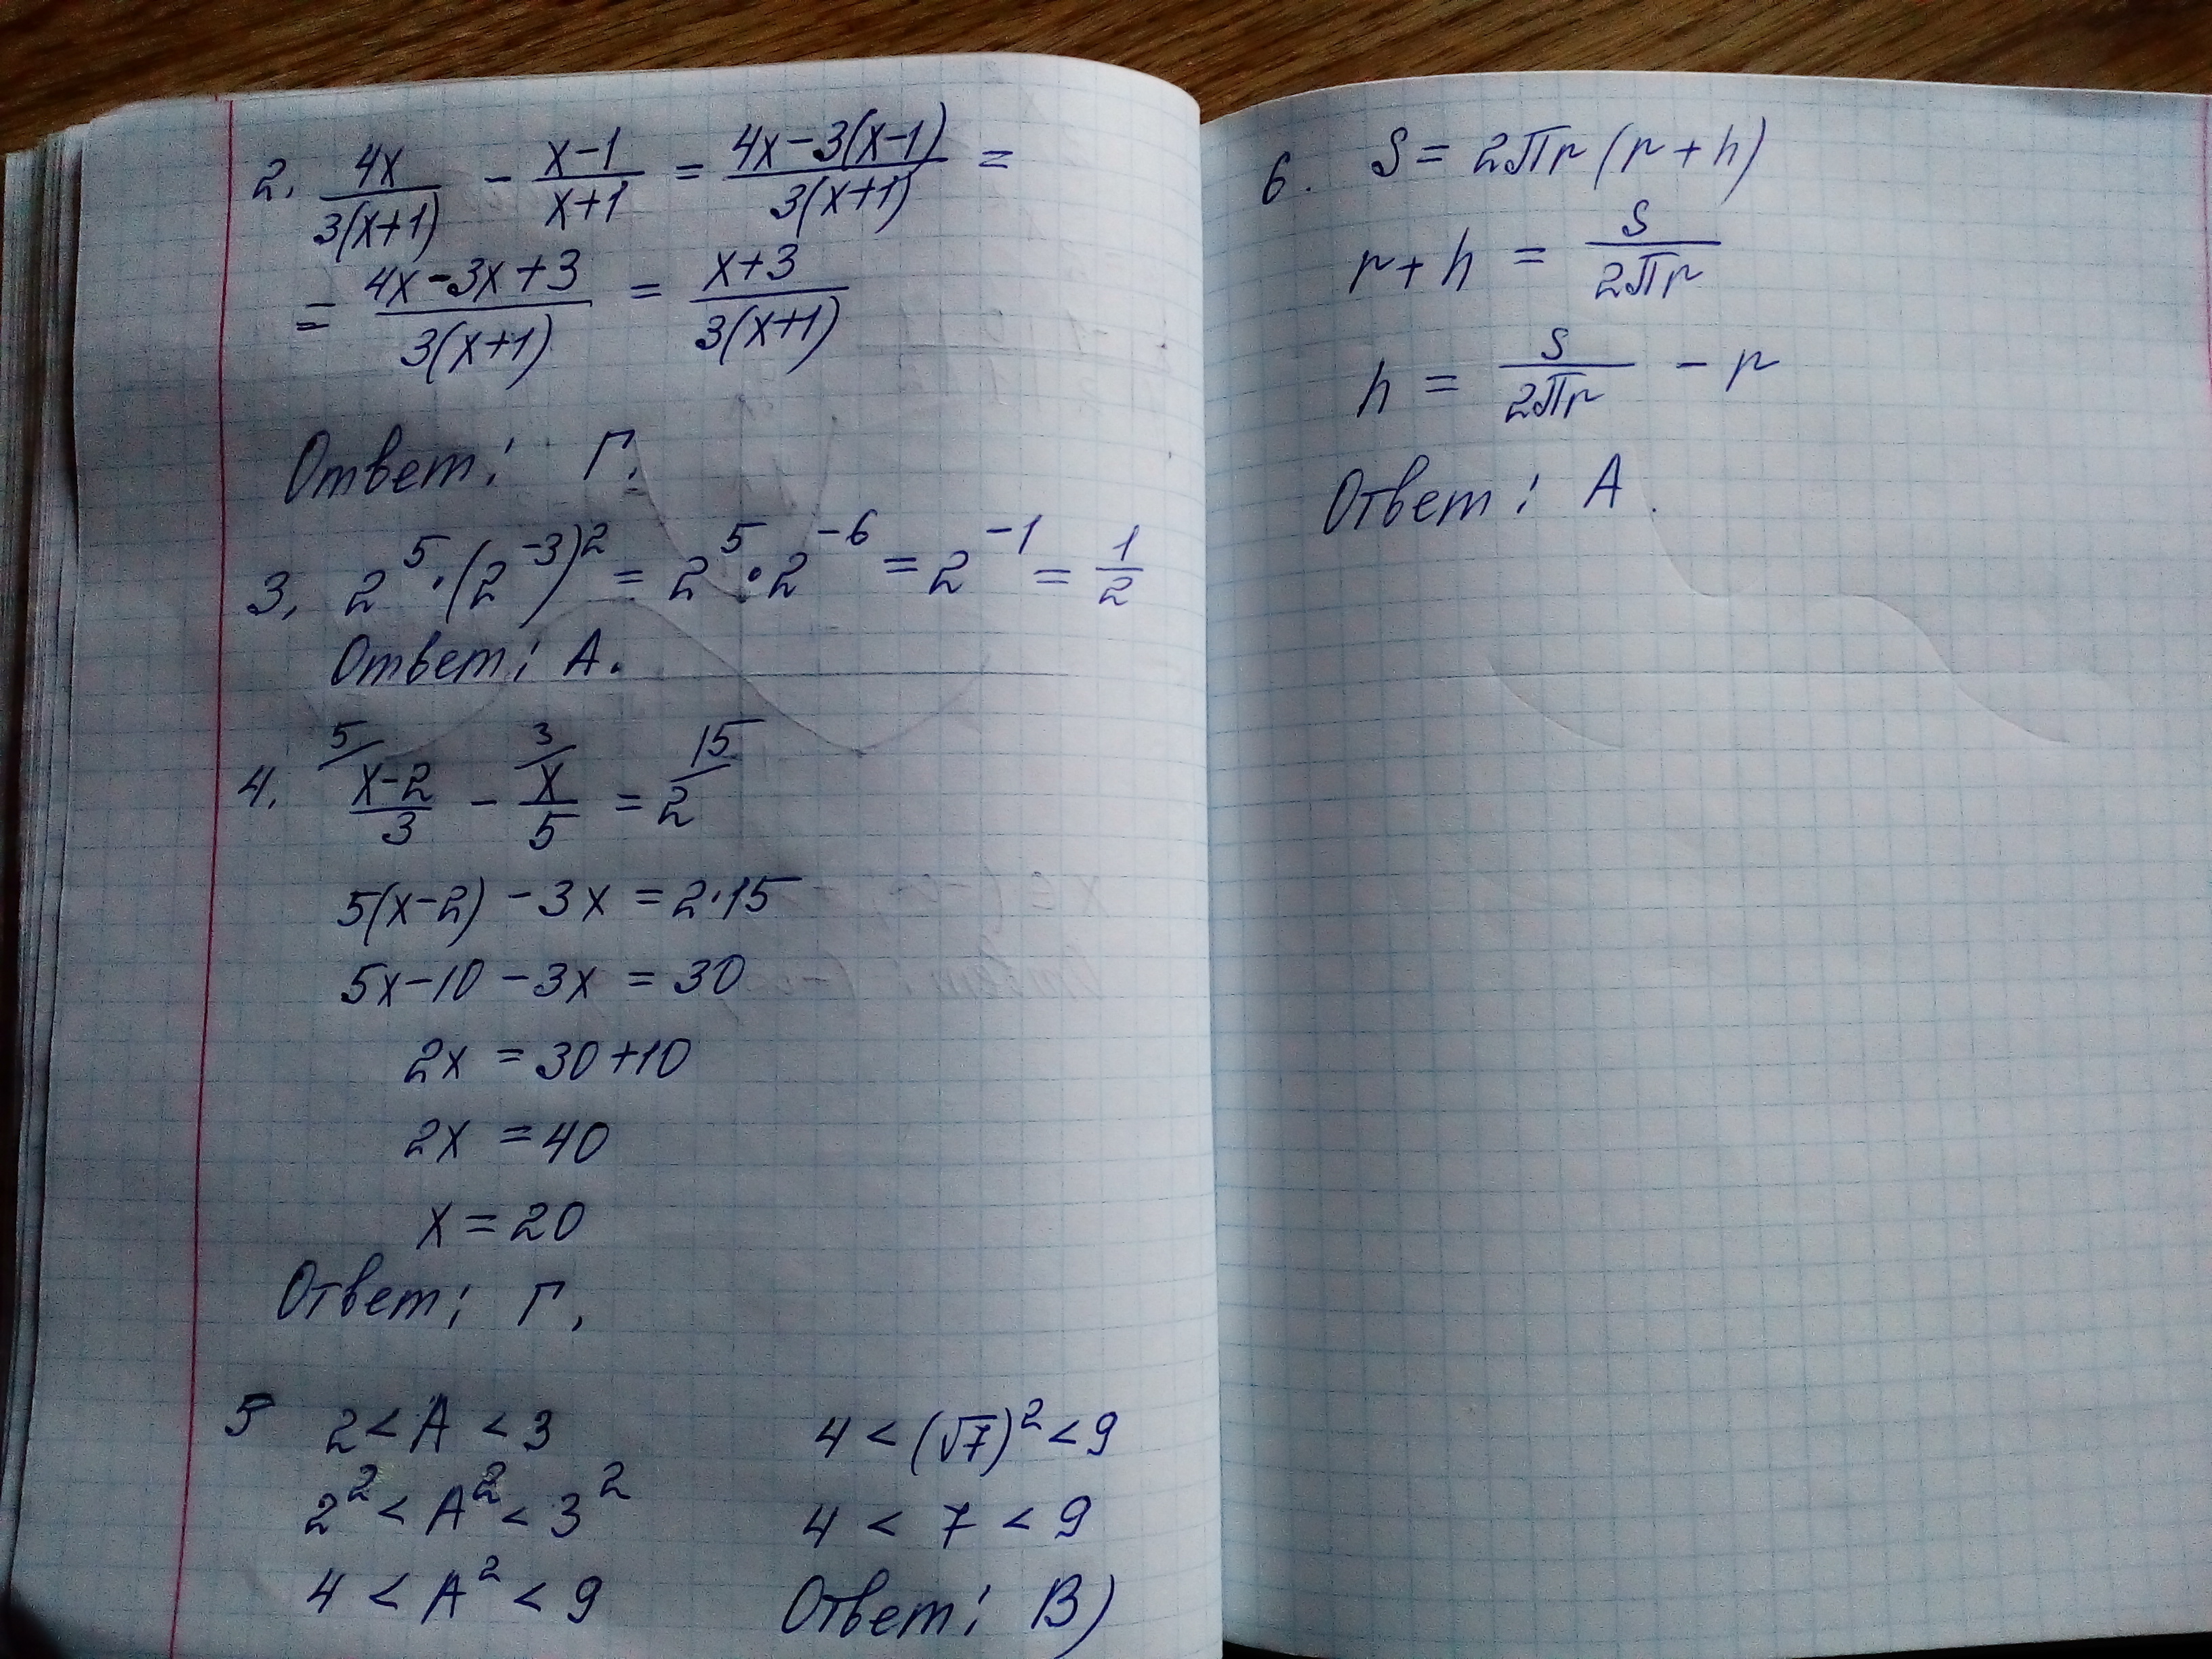 2. 4x/3(x+1) - x-1/x+1 = 4x-3(x-1)/3(x+1) =
= 4x-3x+3/3(x+1) = x+3/3(x+1)
Ответ: Г.
3. 2^5·(2^-3)^2 = 2^5·2^-6 = 2^-1 = 1/2
Ответ: А.
4. 5/ x-2/3 - 3/ x/5 = 2 15/
5(x-2) -3x = 2·15
5x-10-3x = 30
2x = 30+10
2x = 40
x = 20
Ответ: Г.
5 2 < A < 3
2^2 < A^2 < 3^2
4 < A^2 < 9
4 < (√7)^2 < 9
4 < 7 < 9
Ответ: В)
6. S = 2πr(r+h)
r+h = S/2πr
h = S/2πr - r
Ответ: А.